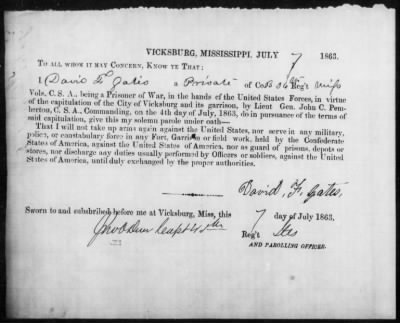 VICKSBURG, MISSISSIPPI, JULY 7 1863.
TO ALL WHOM IT MAY CONCERN, KNOW YE THAT:
I David F. Gates a Private of Co. Reg't Miss
Vols. C. S. A., being a Prisoner of War, in the hands of the United States Forces, in virtue
of the capitulation of the City of Vicksburg and its garrison, by Lieut. Gen. John C. Pem-
berton, C. S. A., Commanding, on the 4th day of July, 1863, do in pursuance of the terms of
said capitulation, give this my solemn parole under oath—
That I will not take up arms again against the United States, nor serve in any military,
police, or constabulary force in any Fort, Garrison or field work, held by the Confederate
States of America, against the United States of America, nor as guard of prisons, depots or
stores, nor discharge any duties usually performed by Officers or soldiers, against the United
States of America, until duly exchanged by the proper authorities.
David, F. Gates,
Sworn to and subscribed before me at Vicksburg, Miss, this 7 day of July 1863.
Reg't Ills
AND PAROLLING OFFICER.